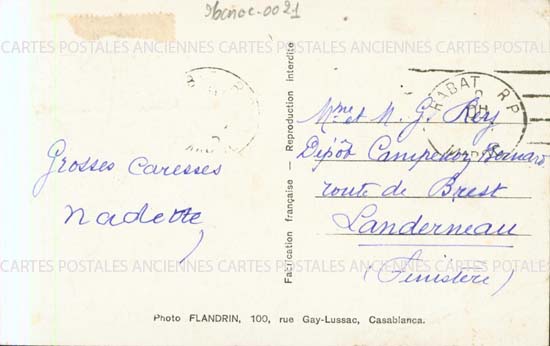 96cnoc-0021
CARTES POSTALES ANCIENNES CARTES POSTALES ANCIENNES CARTES POSTALES
RABAT R.P
Grosses Caresses
Nadette
Fabrication française — Reproduction interdite
Mme et M. G. Roy
Dépôt Campenon Bernard
route de Brest
Landerneau
(Finistère)
CARTES POSTALES ANCIENNES CARTES POSTALES ANCIENNES CARTES POSTALES
Photo FLANDRIN, 100, rue Gay-Lussac, Casablanca.